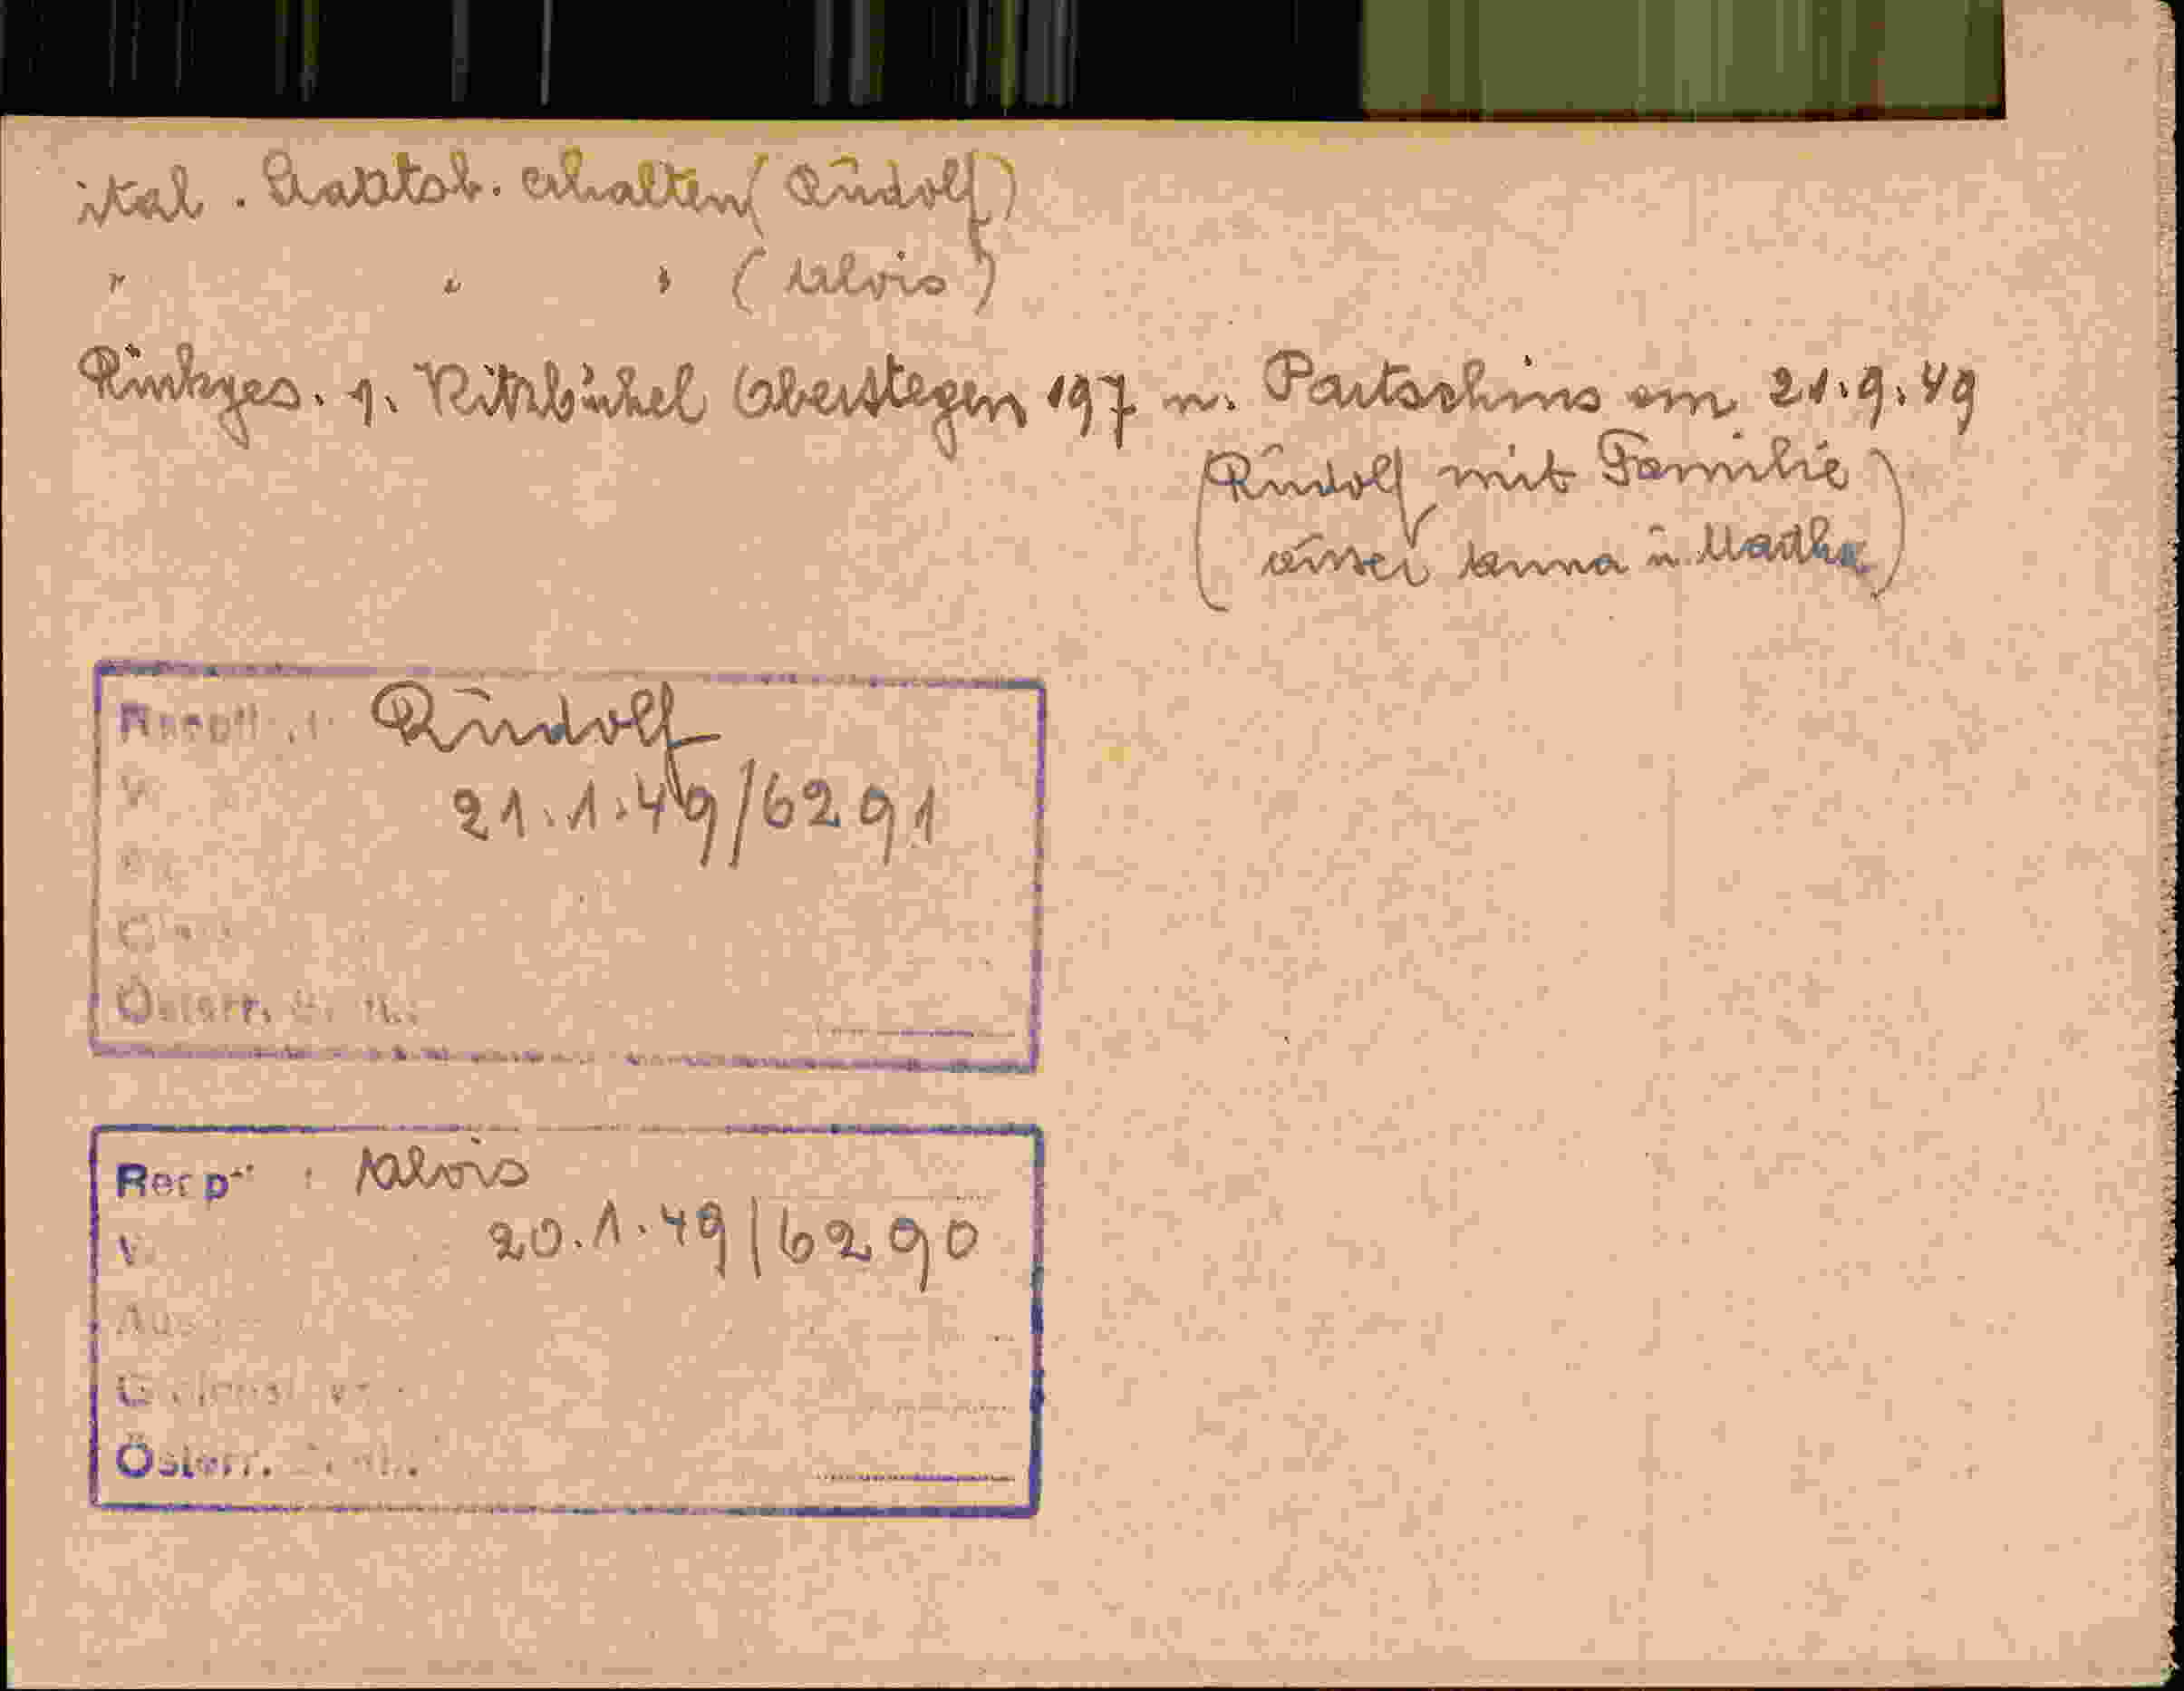 ital. Staatsb. erhalten (Rudolf)
" " " (Alois)
Rückges. v. Kitzbühel Oberstegen 197 n. Partschins am 21.9.49
(Rudolf mit Familie
ausser Anna u. Martha)
Rudolf
21.1.49/6291
Österr.
Alois
20.1.49/6290
Österr.